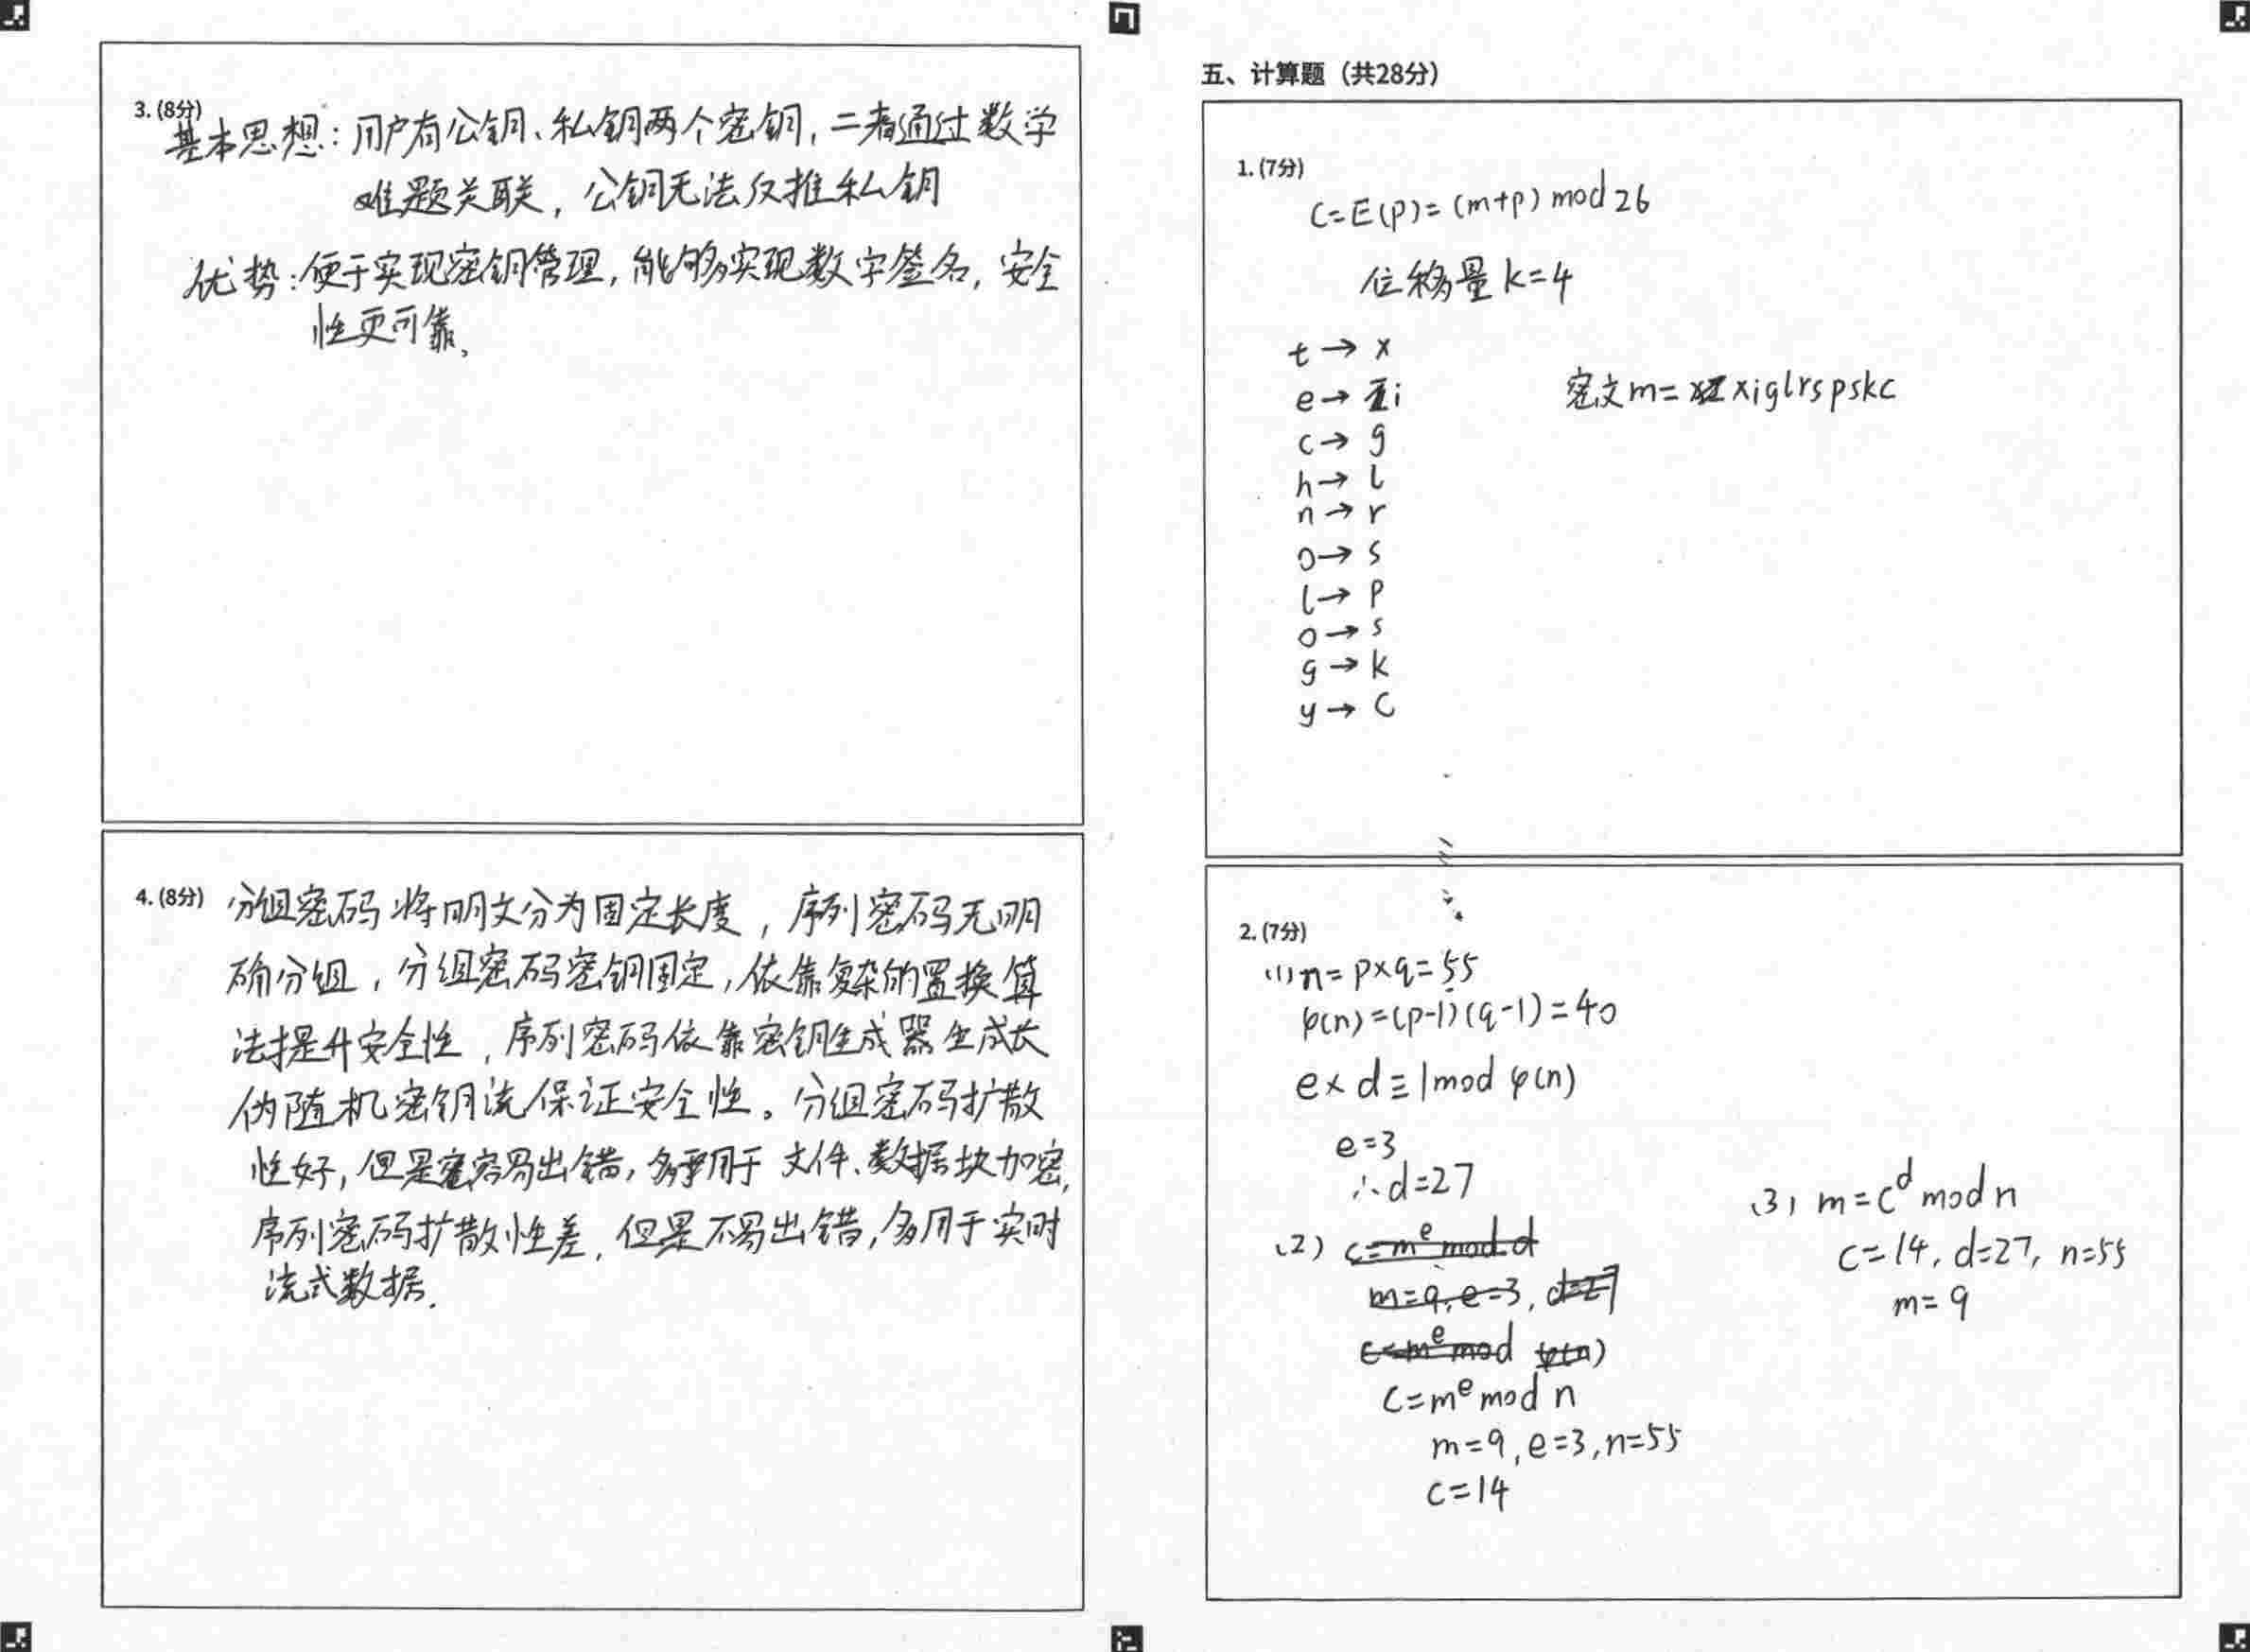 3. (8分)
基本思想：用户有公钥、私钥两个密钥，二者通过数学
难题关联，公钥无法反推私钥
优势：便于实现密钥管理，能够实现数字签名，安全
性更可靠。
4. (8分) 分组密码将明文分为固定长度，序列密码无明
确分组，分组密码密钥固定，依靠复杂的置换算
法提升安全性，序列密码依靠密钥生成器生成长
伪随机密钥流保证安全性。分组密码扩散
性好，但是容易出错，多用于文件、数据块加密，
序列密码扩散性差，但是不易出错，多用于实时
流式数据．
五、计算题（共28分）
1. (7分)
C=E(p)=(m+p) mod 26
位移量 k=4
t→x
e→i
密文m= xiglrspskc
c→g
h→l
n→r
o→s
l→p
o→s
g→k
y→c
2. (7分)
(1) n=p×q=55
φ(n)=(p-1)(q-1)=40
e×d≡1 mod φ(n)
e=3
∴d=27
(2) c=mᵉ mod d
m=9, e=3, d=27
c=mᵉ mod φ(n)
c=mᵉ mod n
m=9, e=3, n=55
c=14
(3) m=cᵈ mod n
c=14, d=27, n=55
m=9